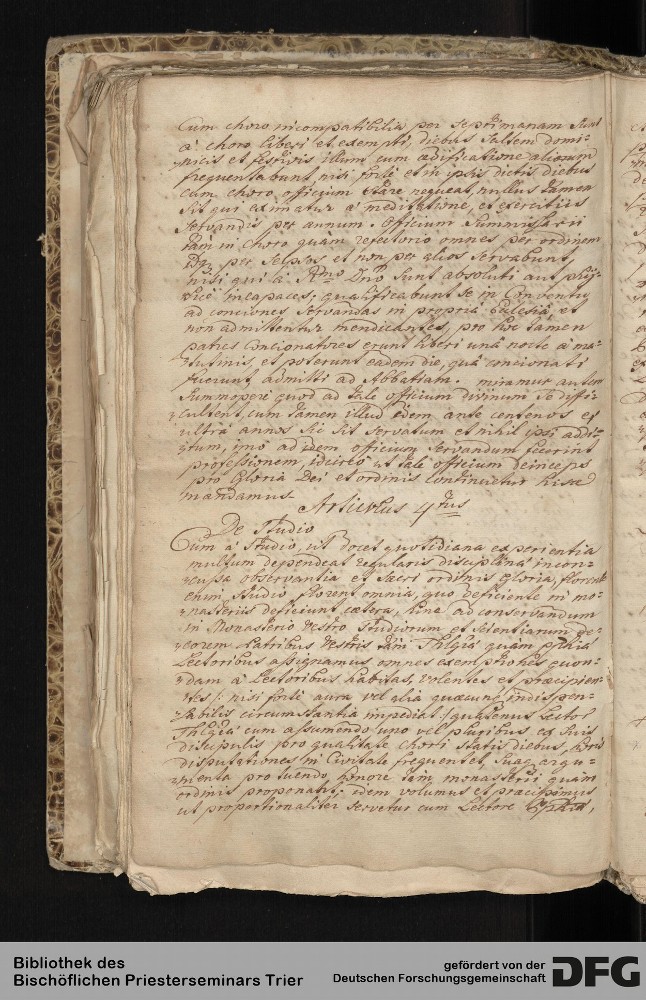 Cum choro incompatibilia per septimanam sunt
a choro liberi et exempti, diebus saltem domi-
nicis et festivis illum cum ædificatione aliorum
frequentabunt, nisi forte et in ipsis dictis diebus
cum choro officium stare nequeat, nullus tamen
sit qui eximatur a meditatione, et exercitiis
servandis per annum. Officium Summissarii
tam in choro quam refectorio omnes per ordinem
per seipsos et non per alios servabunt,
nisi qui a Rmo Dno sunt absoluti aut phÿ-
sice incapaces; qualificabunt se in Conventu
ad conciones servandas in propria Ecclesia, et
non admittentur mendicantes, pro hoc tamen
patres concionatores erunt liberi una nocte a ma-
tutinis, et poterunt eadem die, qua concionati
fuerunt, admitti ad Abbatiam. miramur autem
summopere quod ad tale officium divinum se diffi-
cultent, cum tamen illud idem ante centenos et
ultra annos sic sit servatum et nihil ipsi addi-
tum, imo ad idem officium servandum fecerint
professionem, idcirco ut tale officium deinceps
pro Gloria Dei et ordinis continuetur hisce
mandamus.
Articulus 4tus
De Studio
Cum a studio, ut docet quotidiana experientia
multum dependeat regularis disciplina incon-
cussa observantia et sacri ordinis gloria, florente
enim studio florent omnia, quo deficiente in mo-
nasteriis deficiunt cætera, hinc ad conservandum
in Monasterio vestro studiorum et scientiarum de-
corem Patribus vestris tam Thlgiæ quam phiæ
Lectoribus assignamus omnes exemptiones quon-
dam a Lectoribus habitas, volentes et præcipien-
tes /: nisi forte aura vel alia quæcunq indispen-
sabilis circumstantia impediat :/ quatenus Lector
Thlgiæ cum assumendo uno vel pluribus ex suis
discipulis pro qualitate chori statis diebus, horis
disputationes in Civitate frequentet, suaq argu-
menta pro tuendo honore tam monasterii quam
ordinis proponat; idem volumus et præcipimus
ut proportionaliter servetur cum Lectore Phiæ,
Bibliothek des
Bischöflichen Priesterseminars Trier
gefördert von der
Deutschen Forschungsgemeinschaft
DFG